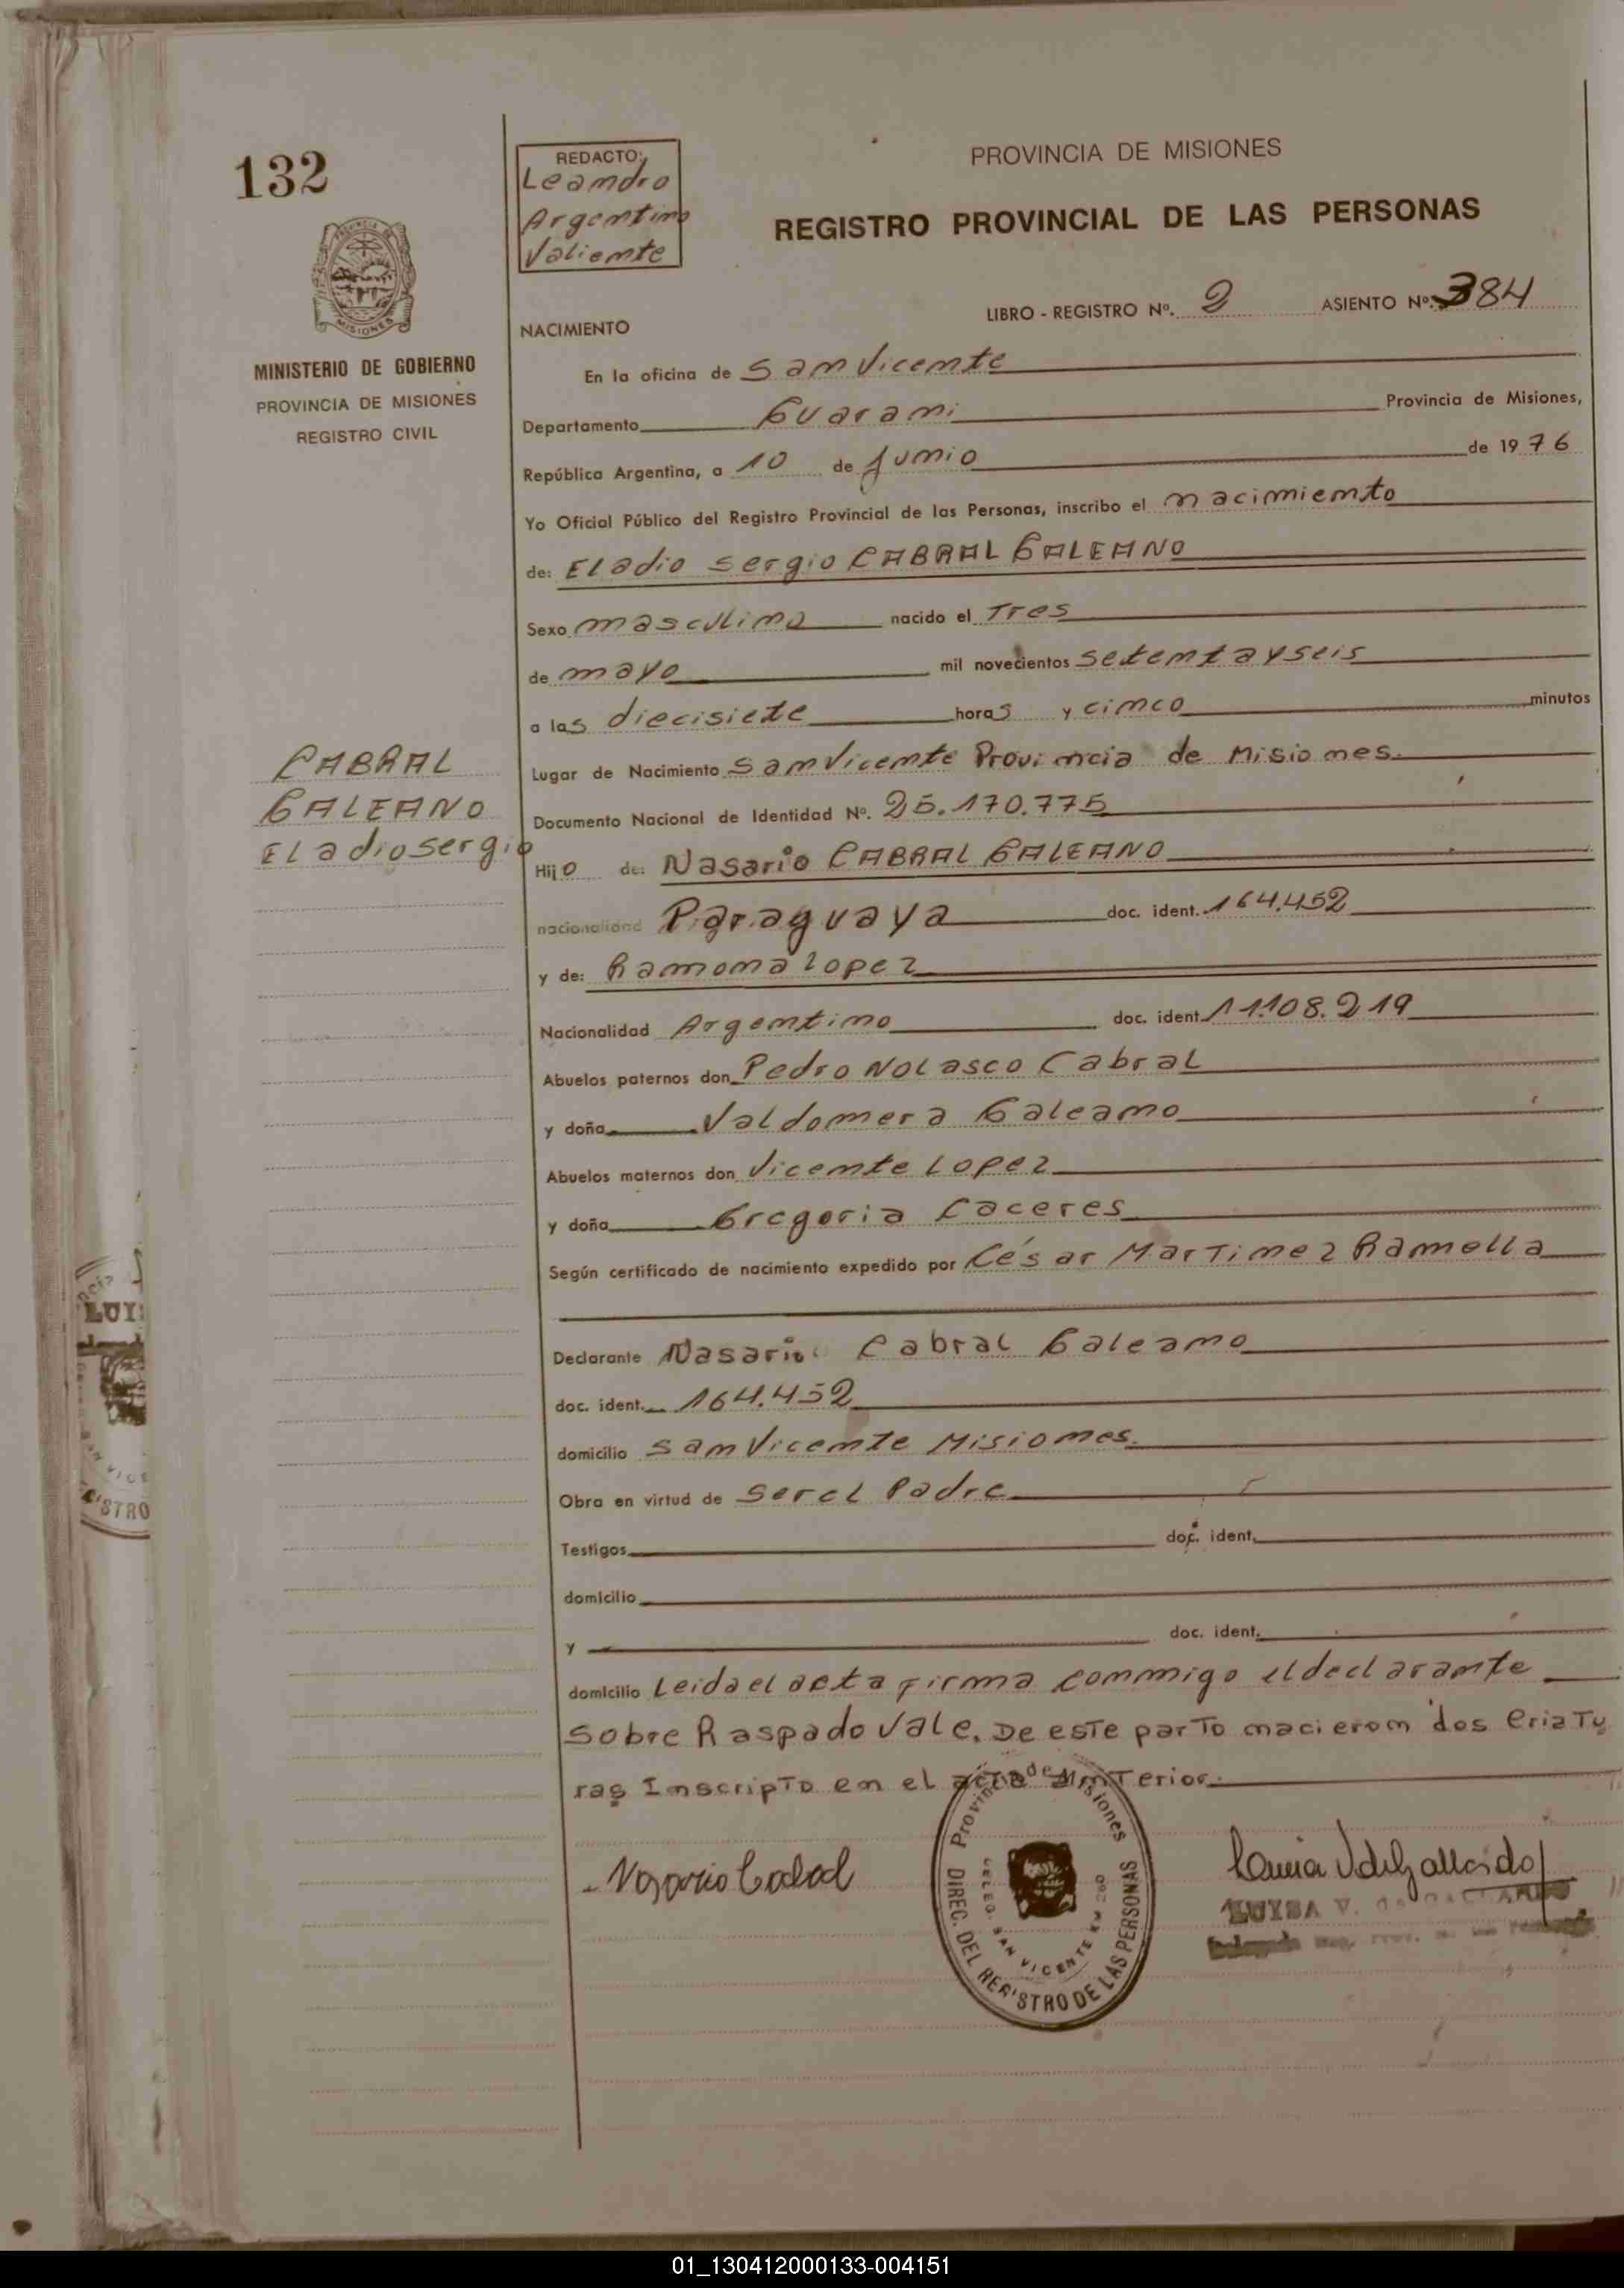 132
REDACTO:
Leandro
Argentino
Valiente
PROVINCIA DE MISIONES
REGISTRO PROVINCIAL DE LAS PERSONAS
LIBRO - REGISTRO Nº. 2 ASIENTO Nº. 384
NACIMIENTO
MISIONES
MINISTERIO DE GOBIERNO
PROVINCIA DE MISIONES
REGISTRO CIVIL
En la oficina de San Vicente
Departamento Guarani Provincia de Misiones,
República Argentina, a 10 de Junio de 1976
Yo Oficial Público del Registro Provincial de las Personas, inscribo el nacimiento
de: Eladio Sergio CABRAL GALEANO
Sexo masculino nacido el Tres
de mayo mil novecientos setentayseis
a las diecisiete horas y cinco minutos
Lugar de Nacimiento San Vicente Provincia de Misiones.
Documento Nacional de Identidad Nº. 25.170.775
CABRAL
GALEANO
Eladio sergio
Hijo de: Nasario CABRAL GALEANO
nacionalidad Paraguaya doc. ident. 164.452
y de: Ramona Lopez
Nacionalidad Argentina doc. ident. 11.108.219
Abuelos paternos don Pedro Nolasco Cabral
y doña Valdomera Galeano
Abuelos maternos don Vicente Lopez
y doña Gregoria Caceres
Según certificado de nacimiento expedido por César Martinez Ramella
Declarante Nasario Cabral Galeano
doc. ident. 164.452
domicilio San Vicente Misiones.
Obra en virtud de ser el Padre
Testigos doc. ident.
domicilio
y doc. ident.
domicilio Leida el acta firma conmigo el declarante
Sobre Raspado Vale. De este parto nacieron dos criatu
ras Inscripto en el acta anterior.
Nasario Cabral
Provincia de Misiones
DELEG. SAN VICENTE KM 260
DIREC. DEL REGISTRO DE LAS PERSONAS
LUISA V. de GALLARDO
LUI
SAN VICE
ISTRO
01_130412000133-004151